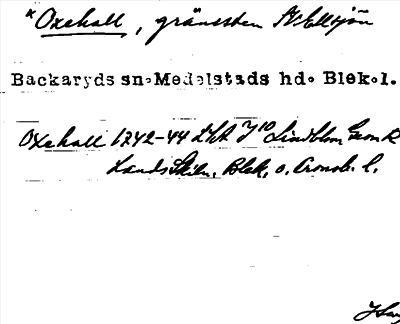 *Oxehall, gränssten St. Ellsjön
Backaryds sn. Medelstads hd. Blek.l.
Oxehall 1742-44 LSA J10 Lindblom Geom R
Landskiln. Blek. o. Cronob. l.